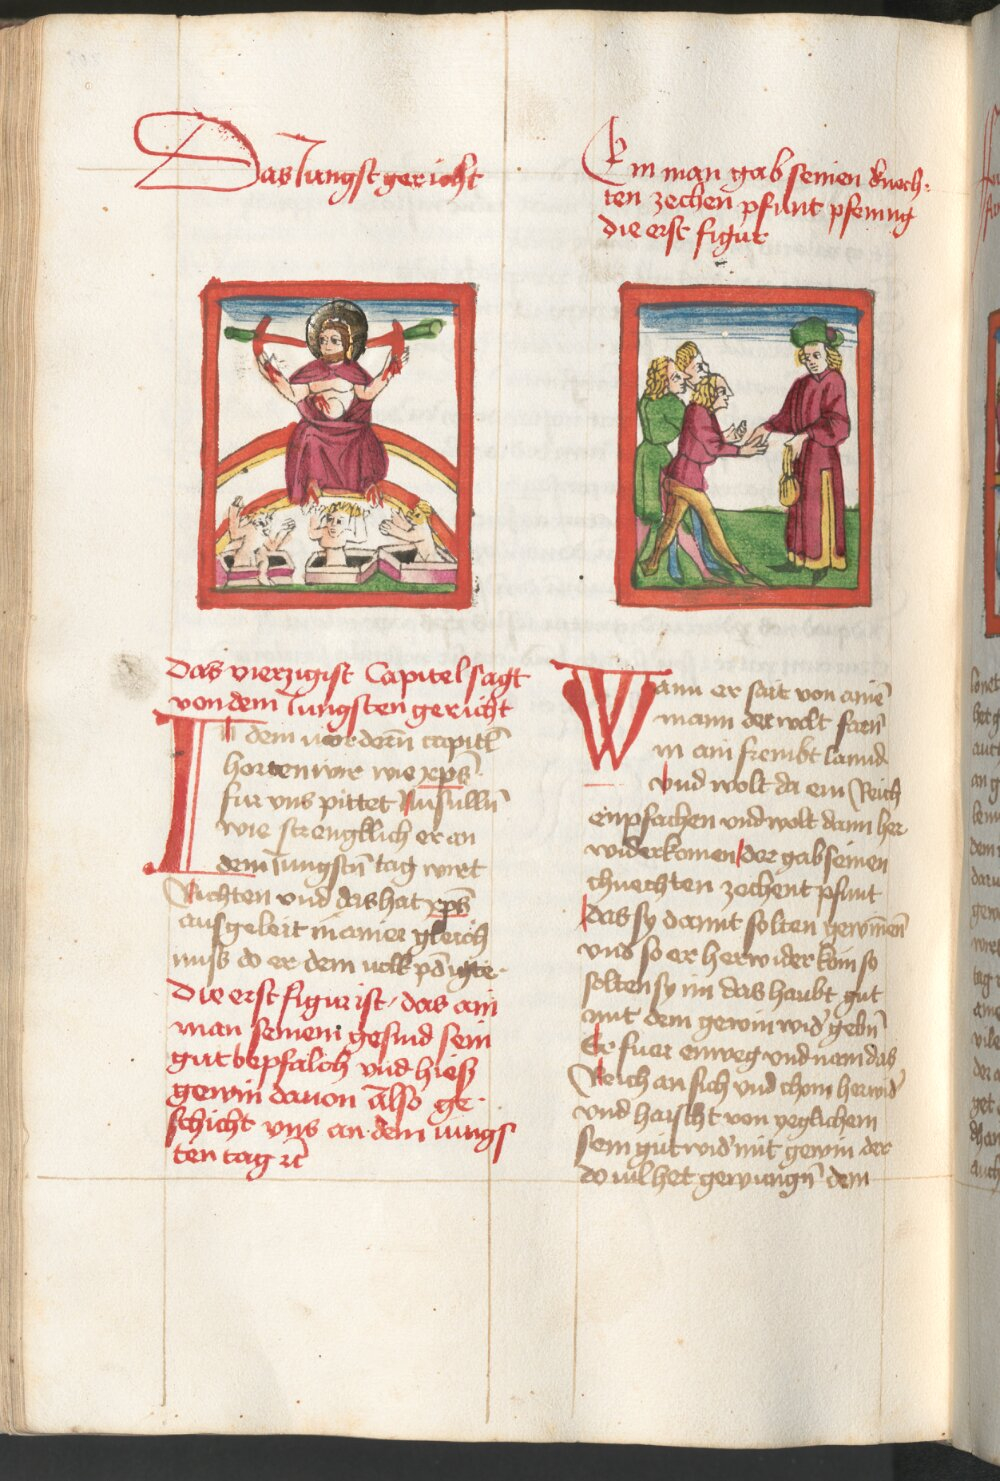 Das Jungst gericht
Das vierzigist Capitel sagt
von dem Jungsten gericht
In dem vordorñ capitl̄
horten wir wie xp̄s
fur vns pittet Nu sulln̄
wir strengklich er an
dem Jungstn̄ tag wirt
Richten vnd das hat xp̄s
ausgeleit in ainer gleich
nuss do er dem volk p̄digte
Die erst figur ist / das ain
man seinem gesind sein
gut bepfalch vnd hiess
gewin dauon Also ge-
schicht vns an dem iungs
ten tag
Ein man gab seinen knech-
ten zechen pfunt pfening
die erst figur
Wann er sait von ainē
mann der wolt farn̄
in ain frembt lannd
vnd wolt da ein Reich
enpfachen vnd wolt dann her
widerkomen der gab seinen
chnechten zechent pfunt
das sy damit solten gewinnen̄
vnd so er herwider kom so
solten sy im das haubt gut
mit dem gewin wid' gebn̄
Er fuer enweg vnd nam das
Reich an sich vnd chom herwid'
vnd haischt von yeglichem
sein gut wid' mit gewin der
do vil het gewungn̄ dem